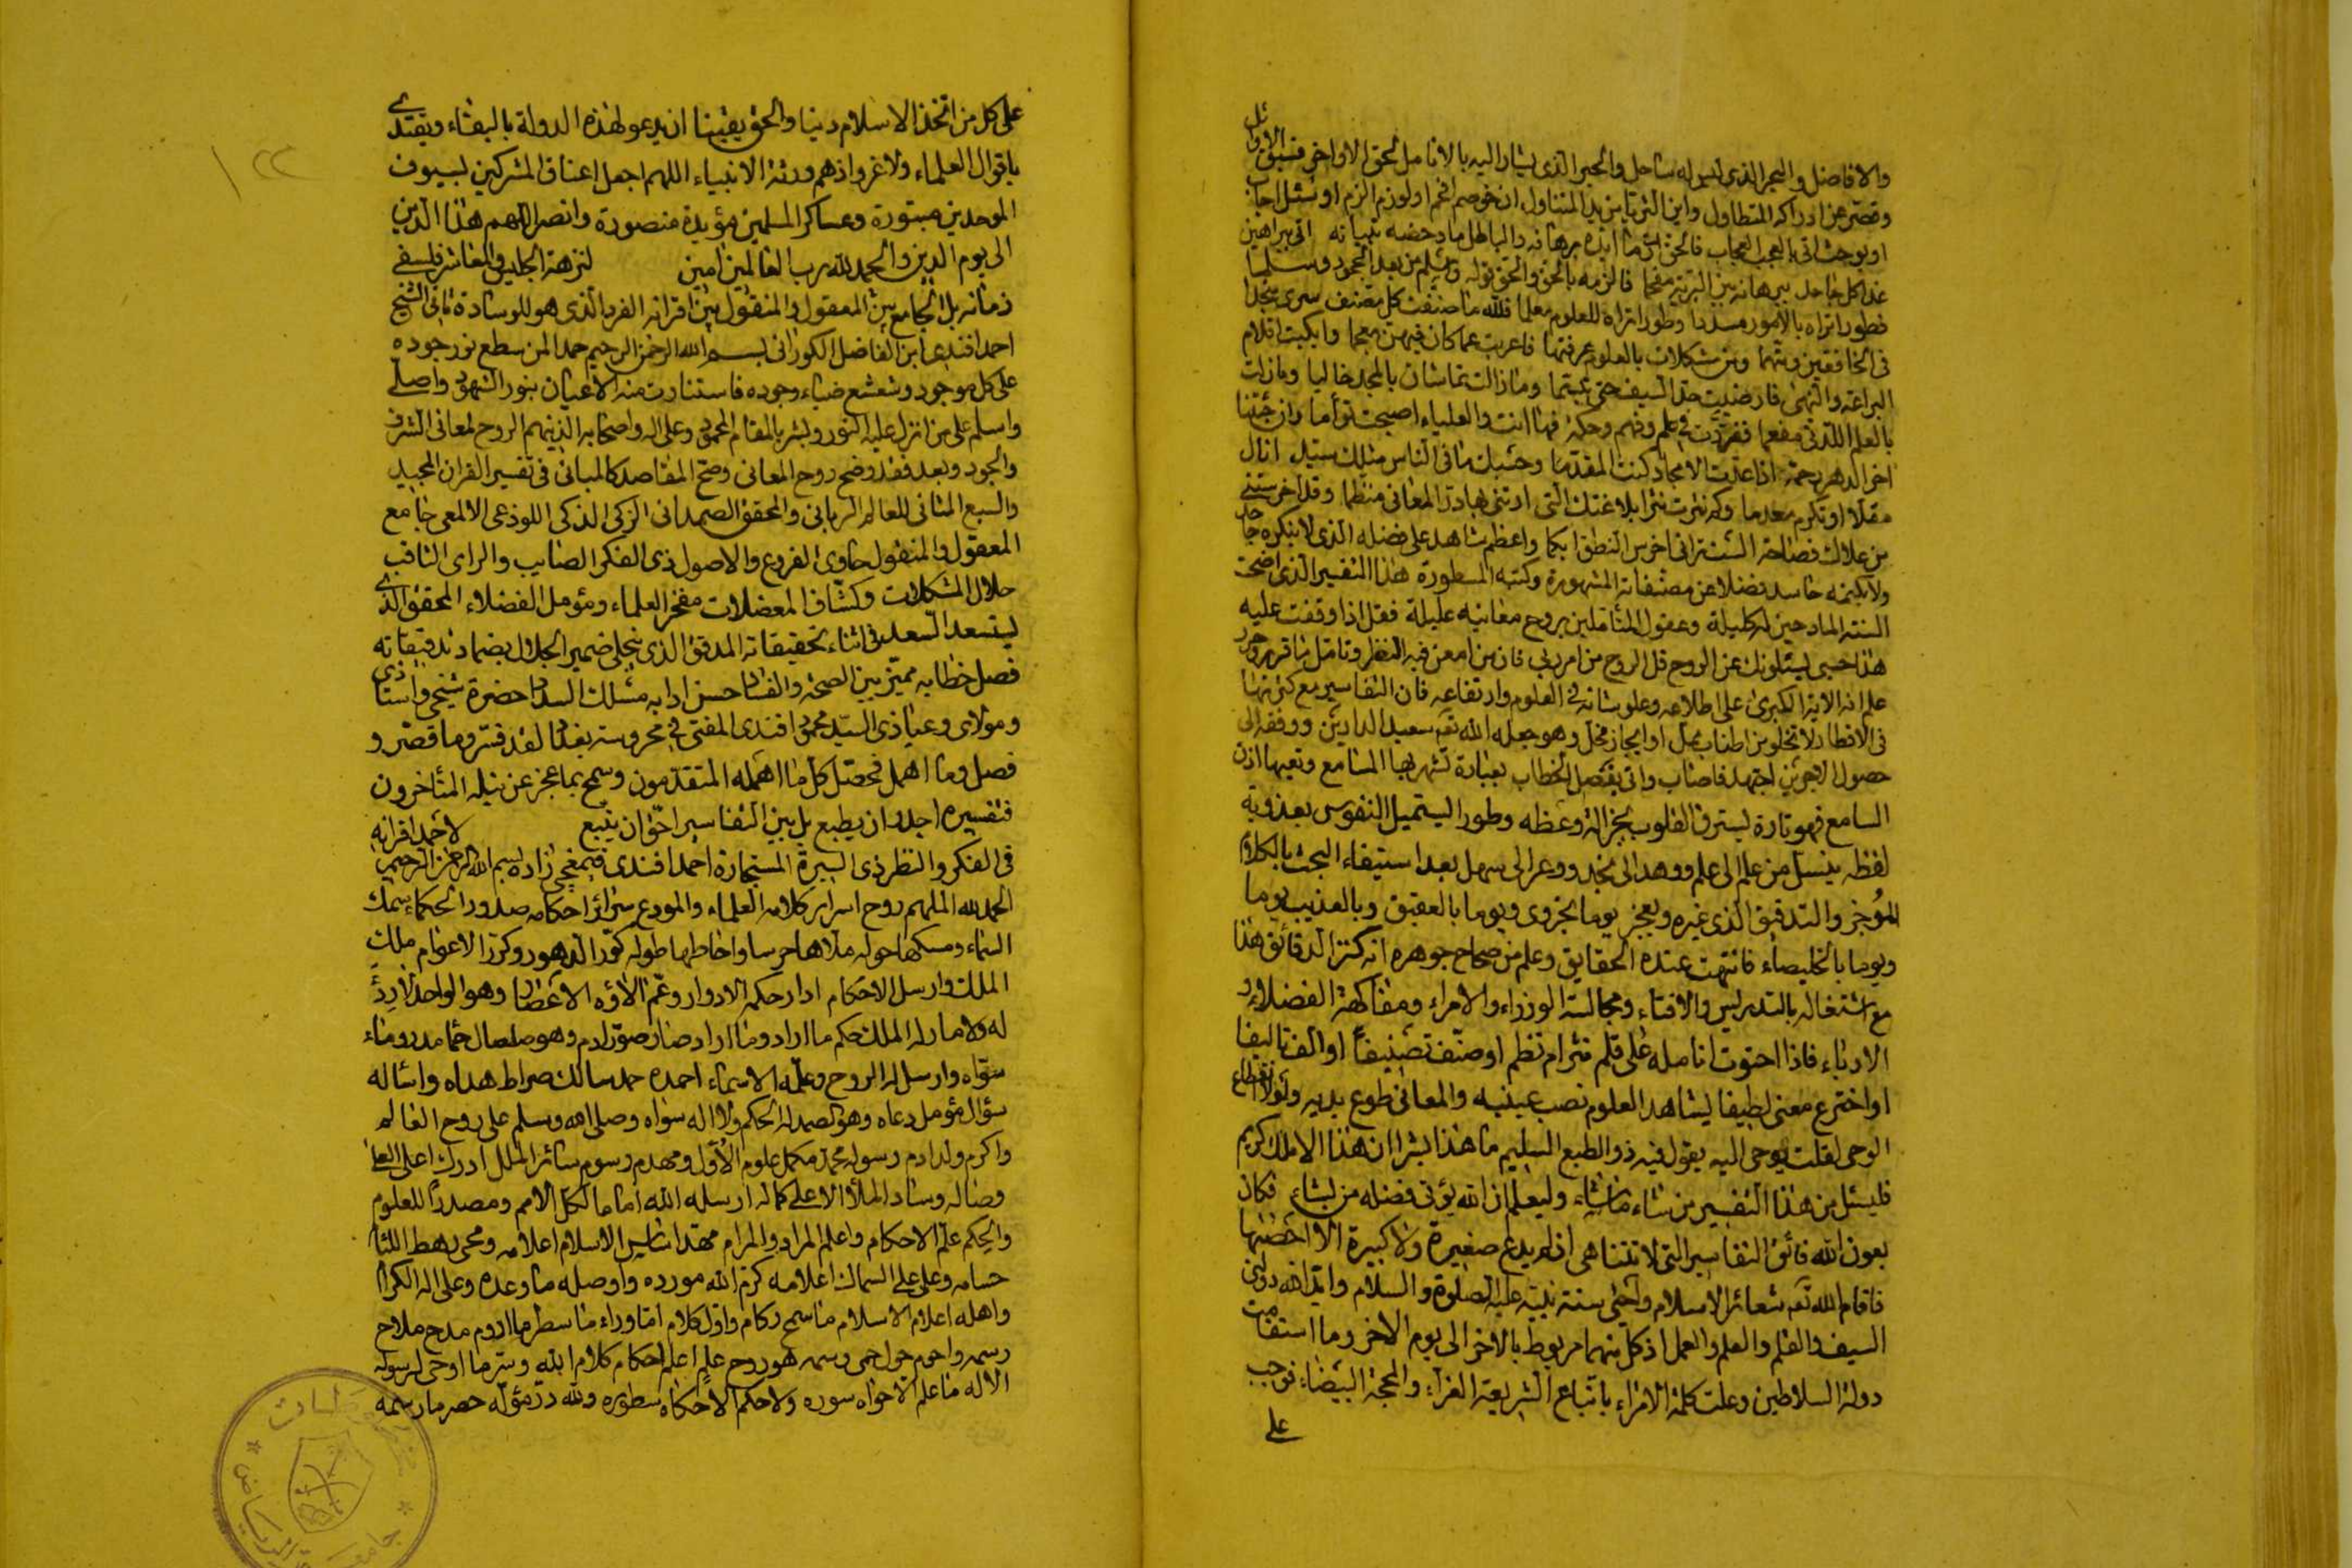 والافاضل والبحر الذى ليس له ساحل والحبر الذى يشار اليه بالانامل لحق الاواخر فسبق الاوائل
وقصر عن ادراكه المتطاول واين الثريا من يد المتناول ان خوصم افحم او لوزم الزم او سئل اجاب
او بوحث اتى بالعجب العجاب فالحق ما ايده برهانه والباطل ما دحضه تبيانه اتى ببراهين
غدا كل جاحد ببرهانه بين البرية مفحما فالزمه بالحق والحق قوله وسلم من بعد الجحود وسلما
فطورا تراه بالامور مسددا وطورا تراه للعلوم معلما فلله ما صنفت كل مصنف سرى منجدا
فى الخافقين ومتهما ومن مشكلات بالعلوم عرفتها فاعربت عما كان فيهن معجما وابكيت اقلام
البراعة والنهى فارضيت حد السيف حتى تبسما وما زالت تماشان بالمجد خاليا وما زلت
بالعلم اللدنى مفعما تفردت فى علم وفهم وحكمة فها انت والعلياء اصبحت توأما وان جئتنا
اخر الدهر رحمة اذا عدت الامجاد كنت المقدما وحسبك ما فى الناس مثلك سيد انال
مقلا او تكرم معدما وكم نثرت نثرا بلاغتك التى ارتنى بها در المعانى منظما وقد اخرستنى
من علاك فصاحة السنة انى اخرس النطق ابكما واعظم شاهد على فضله الذى لا ينكره جاحد
ولا يكتمه حاسد فضلا عن مصنفاته المشهورة وكتبه المسطورة هذا التفسير الذى اضحت
السنة المادحين له كليلة وعقول المتأملين بروح معانيه عليلة فقل اذا وقفت عليه
هذا حسبى يسئلونك عن الروح قل الروح من امر ربى فان من امعن فيه النظر وتامل ما قرره وحرر
علم انه الاية الكبرى على اطلاعه وعلو شانه فى العلوم وارتفاعه فان التفاسير مع كثرتها
فى الاقطار لا تخلو من اطناب ممل او ايجاز مخل وهو جعله الله تعم سعيد الدارين ووفقه الى
حصول الاجرين اجتهد فاصاب واتى بفصل الخطاب بعبارة تشهر بها المسامع وتعيها اذن
السامع فهو تارة يسترق القلوب بجزالة وعظه وطورا يستميل النفوس بعذوبة
لفظه ينسل من علم الى علم ووهد الى نجد ووعر الى سهل بعد استيفاء البحث بالكلام
الموجز والتدقيق الذى غيره ويعجز يوما بحزوى ويوما بالعقيق وبالعذيب يوما
ويوما بالخليصاء فانتهت عنده الحقايق وعلم من صحاح جوهره انه كنز الدقائق هذا
مع اشتغاله بالتدريس والافتاء ومجالسة الوزراء والامراء ومفاكهة الفضلاء و
الادباء فاذا احتوت انامله على قلم فنثر ام نظم او صنف تصنيفا او الف تاليفا
او اخترع معنى لطيفا يشاهد العلوم نصب عينيه والمعانى طوع يديه ولولا انقطاع
الوحى لقلت يوحى اليه يقول فيه ذو الطبع السليم ما هذا بشرا ان هذا الا ملك كريم
فليسئل من هذا التفسير من شاء ما شاء وليعلم ان الله يؤتى فضله من يشاء فكان
بعون الله فائق التفاسير التى لا تتناهى اذ لم يدع صغيرة ولا كبيرة الا احصيها
فاقام الله تعم شعائر الاسلام واحيى سنة نبيه عليه الصلوة والسلام وايد الله دولتى
السيف والقلم والعلم والعمل اذ كل منهما مربوط بالاخر الى يوم الاخر وما استقامت
دولة السلاطين وعلت كلمة الامراء باتباع الشريعة الغراء والمحجة البيضاء فوجب
على
على كل من اتخذ الاسلام دينا والحق يقينا ان يدعو لهذه الدولة بالبقاء ويقتدى
باقوال العلماء ولا غرو اذ هم ورثة الانبياء اللهم اجعل اعناق المشركين لسيوف
الموحدين مبتورة وعساكر المسلمين مؤيدة منصورة وانصر اللهم هذا الدين
الى يوم الدين والحمد لله رب العالمين امين لنزهة الجليس والمعاشر فيلسفى
زمانه بل الجامع بين المعقول والمنقول بين اقرانه الفرد الذى هو للوسادة ثانى الشيخ
احمد افندى ابن الفاضل الكورانى بسم الله الرحمن الرحيم حمدا لمن سطع نور جوده
على كل موجود وشعشع ضياء وجوده فاستنارت منه الاعيان بنور الشهود واصلى
واسلم على من انزل عليه النور وبشر بالمقام المحمود وعلى اله واصحابه الذين هم الروح لمعانى الشرف
والجود وبعد فقد وضح روح المعانى وضح المقاصد كالمبانى فى تفسير القران المجيد
والسبع المثانى للعالم الربانى والمحقق الصمدانى الزكى الذكى اللوذعى الالمعى جامع
المعقول والمنقول حاوى الفروع والاصول ذى الفكر الصايب والراى الثاقب
حلال المشكلات وكشاف المعضلات مفخر العلماء ومؤمل الفضلاء المحقق الذى
يستسعد السعد فى اثناء تحقيقاته المدقق الذى ينجلى ضمير الجلال بضماد تدقيقاته
فصل خطابه مميز بين الصحة والفساد حسن ادابه مسلك السداد حضرة شيخى واستاذى
ومولاى وعياذى السيد محمود افندى المفتى فى محروسة بغداد لقد فسر وما قصر و
فصل وما اهمل فحصل كل ما اهمله المتقدمون وسمح بما عجز عن نيله المتأخرون
فتفسيره اجدر ان يطبع بل بين التفاسير احق ان يتبع لاحمد اقرانه
فى الفكر والنظر ذى السيرة المستجازة احمد افندى قيمقجى زاده بسم الله الرحمن الرحيم
الحمد لله الملهم روح اسرار كلامه العلماء والمودع سرائر احكامه صدور الحكماء سمك
السماء ومسكها حوله ملاها حرسا واحاطها طوله كور الدهور وكرر الاعوام ملك
الملك وارسل الاحكام ادار حكمه الادوار وعم الاؤه الاعصار وهو الواحد لا رد
له ولا مارد له الملك حكم ما اراد وما اراد صار صور ادم وهو صلصال حما مدر وماء
سواه وارسل له الروح وعلمه الاسماء احمده حمد سالك صراط هداه واسأله
سؤال مؤمل دعاه وهو الصمد له الحكم ولا اله سواه وصلى الله وسلم على روح العالم
واكرم ولد ادم رسوله محمد مكمل علوم الاول ومهدم رسوم سائر الملل ادرك اعلى العلا
وصاله وساد الملأ الاعلى كماله ارسله الله اماما لكل الامم ومصدرا للعلوم
والحكم علم الاحكام واعلم المراد والمرام مهد اساس الاسلام اعلامه ومحى رهط اللئام
حسامه وعلى على السماك اعلامه كرم الله مورده واوصله ما وعده وعلى اله الكرام
واهله اعلام الاسلام ما سمح ركام واول كلام اما وراء ما سطر ما اروم مدح ملاح
رسمه واحوم حول حمى وسمه هو روح علم اعلم احكام كلام الله وسر ما اوحى لرسوله
الاله ما علم الا حواه سوره ولا حكم الا حكاه سطوره ولله در مؤلفه حصر ما رسمه
١٢٢